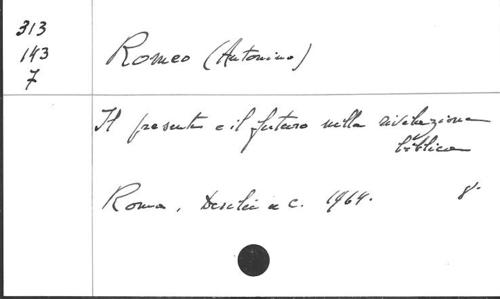 313
143
7
Romeo (Antonino)
Il presente e il futuro nella rivelazione
biblica
Roma, Desclée e C. 1964. 8º